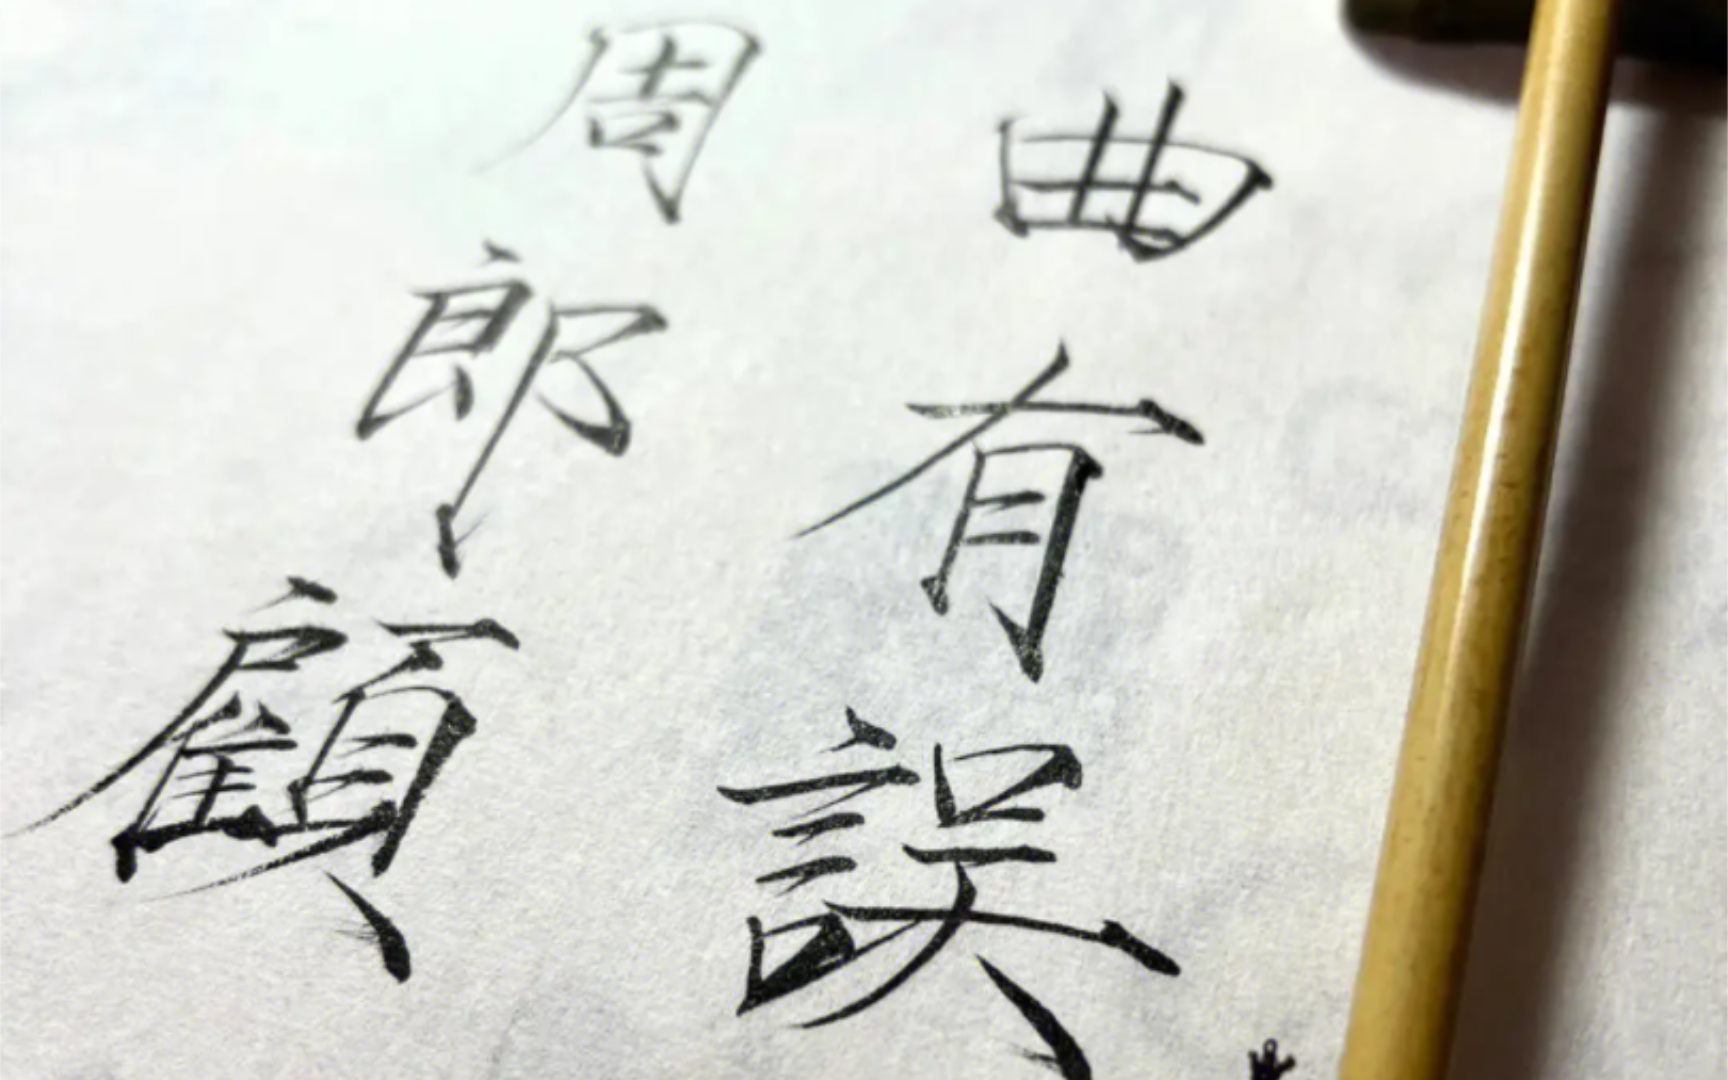 曲有誤
周郎顧